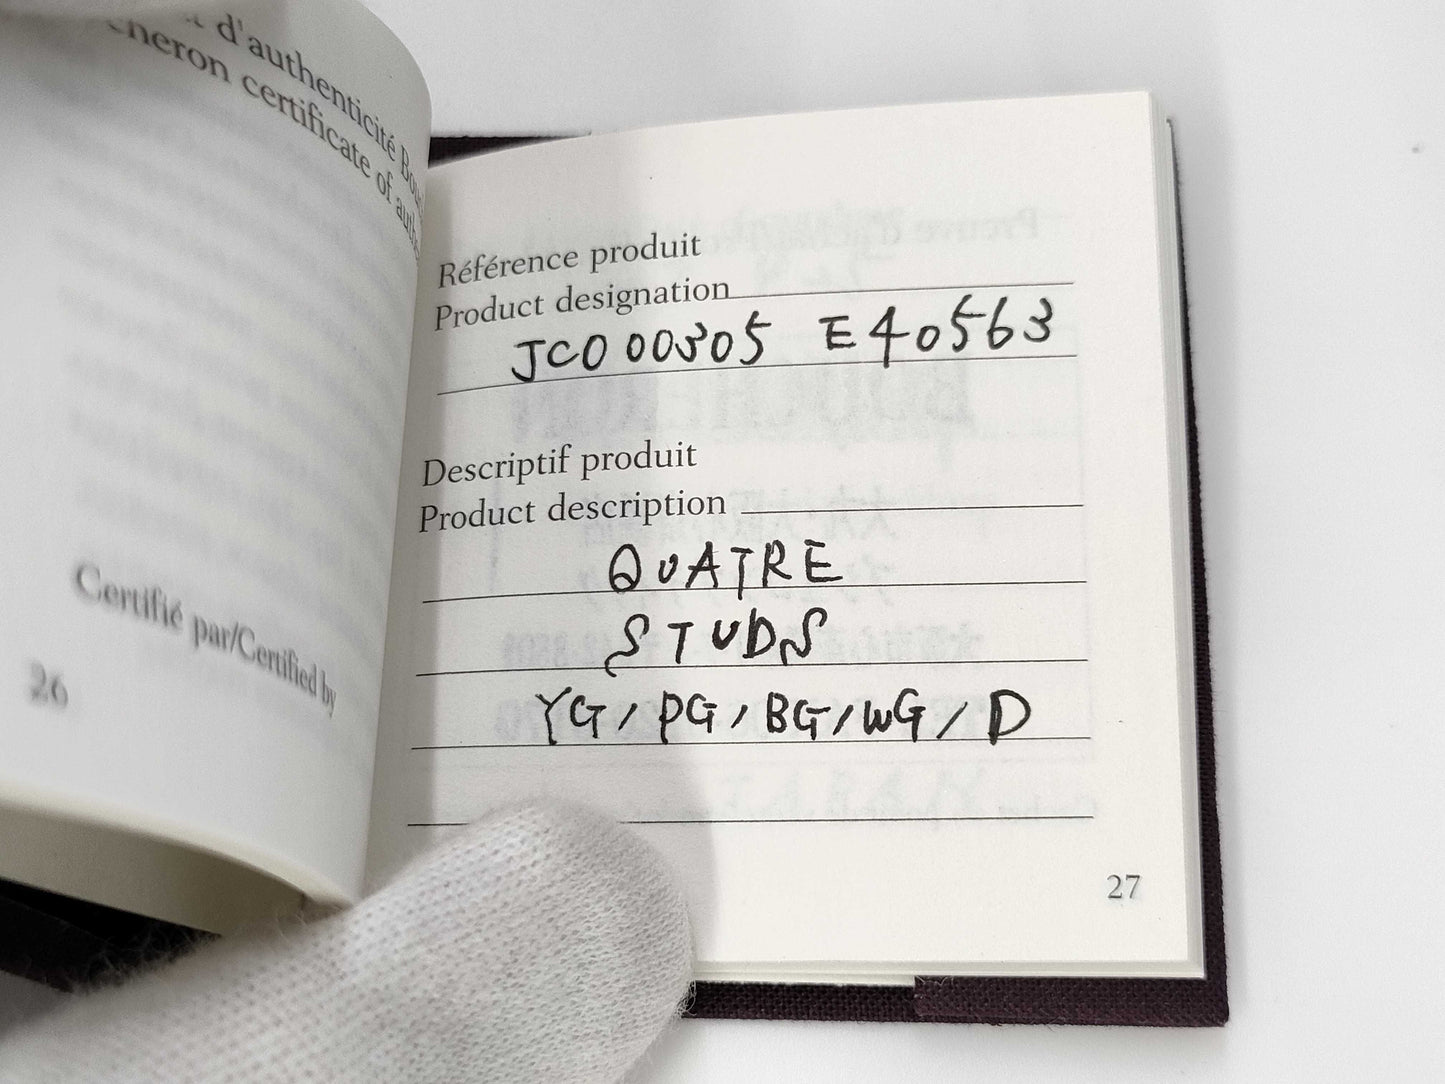 d'authenticité Bou
cheron certificate of auth
Certifié par/Certified by
26
Référence produit
Product designation
JCO00305 E40563
Descriptif produit
Product description
QUATRE
STUDS
YG/PG/BG/WG/D
27